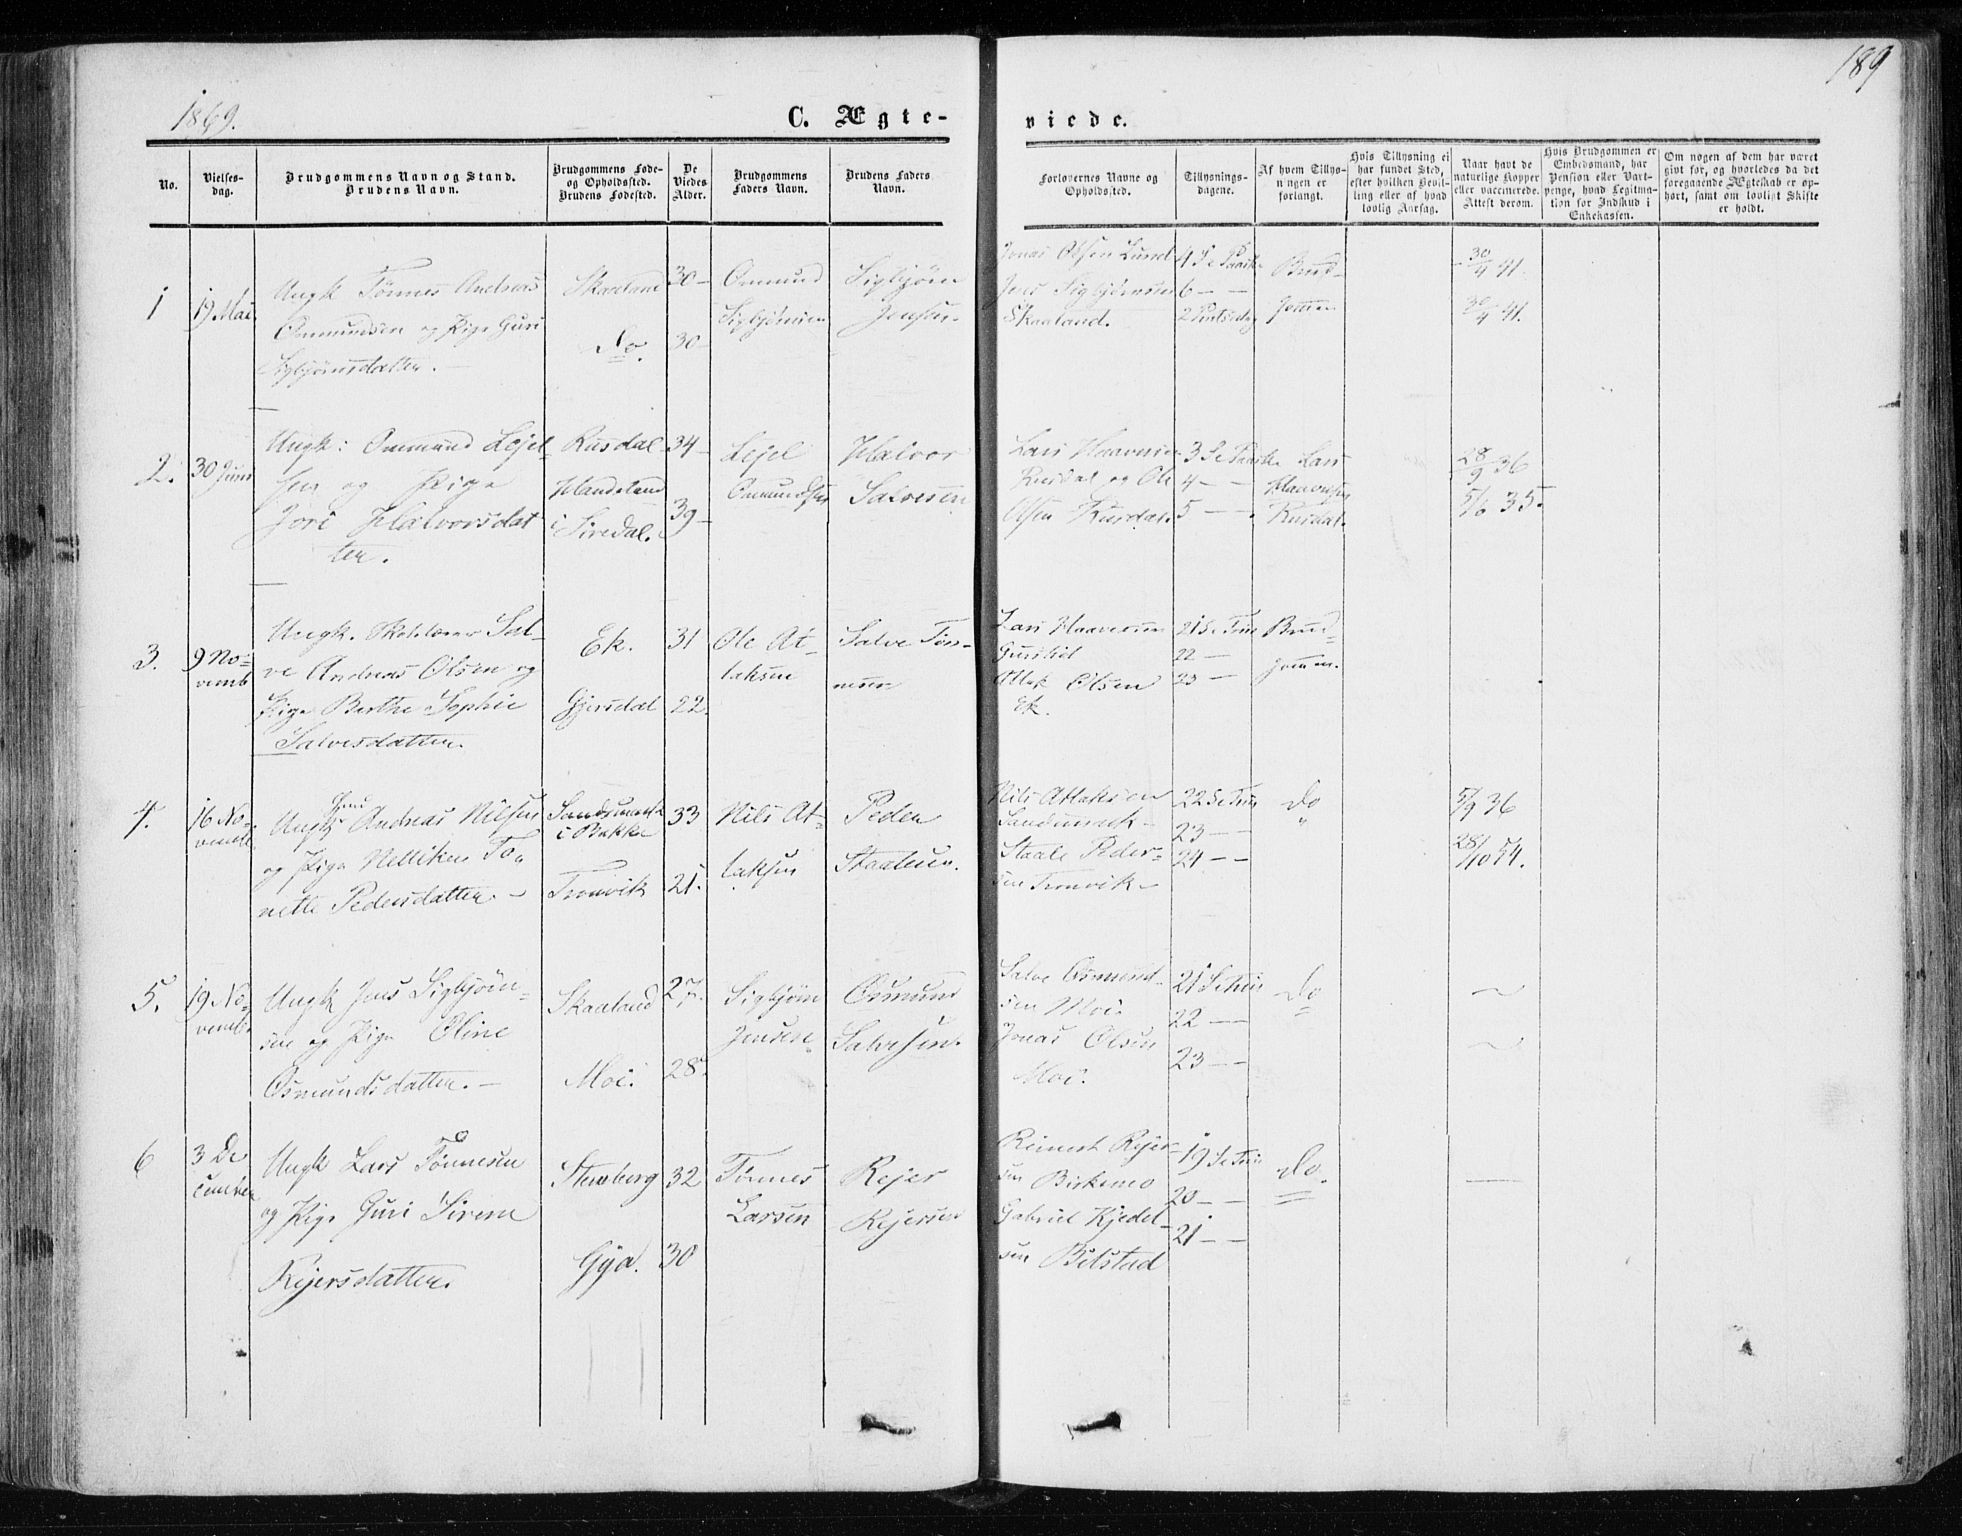 189
1869.
C. Ægte-
viede.
No.
Vielses-
dag.
Brudgommens Navn og Stand.
Brudens Navn.
Brudgommens Føde-
og Opholdssted.
Brudens Fødested.
De
Viedes
Alder.
Brudgommens
Faders Navn.
Brudens Faders
Navn.
Forlovernes Navne og
Opholdssted.
Tillysnings-
dagene.
Af hvem Tillys-
ningen er
forlangt.
Hvis Tillysning ei
har fundet Sted,
efter hvilken Bevil-
ling eller af hvad
lovlig Aarsag.
Naar havt de
naturlige Kopper
eller vaccinerede.
Attest derom.
Hvis Brudgommen er
Embedsmand, har
Pension eller Vart-
penge, hvad Legitima-
tion for Indskud i
Enkekassen.
Om nogen af dem har været
gift før, og hvorledes da det
foregaaende Ægteskab er op-
hørt, samt om lovligt Skifte
er holdt.
1
19 Mai
Ungk Tønnes Andreas
Ommundsen og Pige Guri
Sigbjørnsdatter.
Skaaland
Do.
30
30
Ommund
Sigbjørnsen
Sigbjørn
Jensen
Jonas Olsen Lund
Jens Sigbjørnsen
Skaaland.
4 S e Paaske
6 - -
2 Pintsedag
Brud-
gommen
30/4 41.
30/4 41.
2.
30 Juni
Ungk: Ommund Lejel-
sen og Pige
Jori Halvorsdat
ter.
Rusdal
Handeland
i Siredal.
34
39
Lejel
Ommundsen
Halvor
Salvesen
Lars Haaversen
Rusdal og Ole
Olsen Rusdal.
3 S e Paaske
4 - -
5 - -
Lars
Haaversen
Rusdal.
28/9 36
5/6 35.
3.
9 No-
vemb
Ungk. Skolelærer Sal-
ve Andreas Olsen og
Pige Berthe Sophie
Salvesdatter.
Ek.
Gjersdal
31
22.
Ole At-
laksen
Salve Tøn-
nesen
Lars Haaversen
Atlak Olsen
Ek.
21 S e Trin
22 -
23 -
Brud-
gommen.
4.
16 No-
vembr
Ungk Jens Andreas Nilsen
og Pige Nellikea To-
nette Pedersdatter.
Sandsmark
i Bakke
Tronvik
33
21.
Nils At-
laksen
Peder
Staalesen.
Nils Atlaksen
Sandsmark
Staale Peder-
sen Tronvik
22 S e Trin
23 - -
24 - -
Do
"
5/9 36
28/10 54.
5.
19 No-
vemb.
Ungk Jens Sigbjørn-
sen og Pige Eline
Osmundsdatter.
Skaaland
Moi.
27.
28.
Sigbjørn
Jensen
Osmund
Salvesen.
Salve Osmund-
sen Moi
Jonas Olsen
Moi.
21 S e Trin
22 - -
23 - -
Do
6
3 De
cember
Ungk Lars Tønnesen
og Pige Guri Sirene
Rejersdatter.
Steenberg
Gya.
32
30
Tønnes
Larsen
Rejer
Rejersen
Reinert Rejer-
sen Birkemo
Gabriel Kjedel-
sen Bilstad
19 S e Trin
20 - -
21 - -
Do.